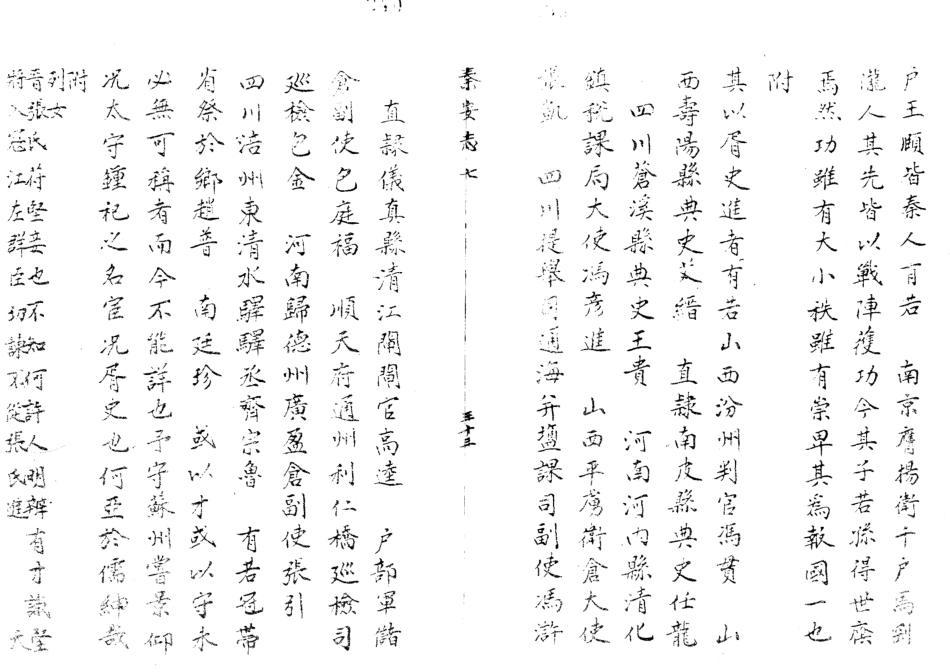 户王頤皆秦人有若　南京鷹楊衛千户馬釗
瀧人其先皆以戰陣獲功今其子若孫得世廕
焉然功雖有大小秩雖有崇卑其為報國一也
附
其以胥史進者有若山西汾州判官馮貫　山
西壽陽縣典史艾縉　直隸南皮縣典史任龍
四川蒼溪縣典史王貴　河南河内縣清化
鎮稅課局大使馮彥進　山西平虜衛倉大使
張凱　四川提舉司通海井鹽課司副使馮滸
秦安志　七　　三十三
直隸儀真縣清江閘閘官高逵　户部軍儲
倉副使包庭福　順天府通州利仁橋巡檢司
巡檢包金　河南歸德州廣盈倉副使張引
四川涪州東清水驛驛丞齊宗魯　有若冠帶
省祭於鄉趙普　南廷珍　或以才或以守永
必無可稱者而今不能詳也予守蘇州嘗景仰
况太守鍾祀之名宦况胥史也何亞於儒紳哉
附
列女
晉張氏苻堅妾也不知何許人明辨有才識堅
將入寇江左群臣切諫不從張氏進　天